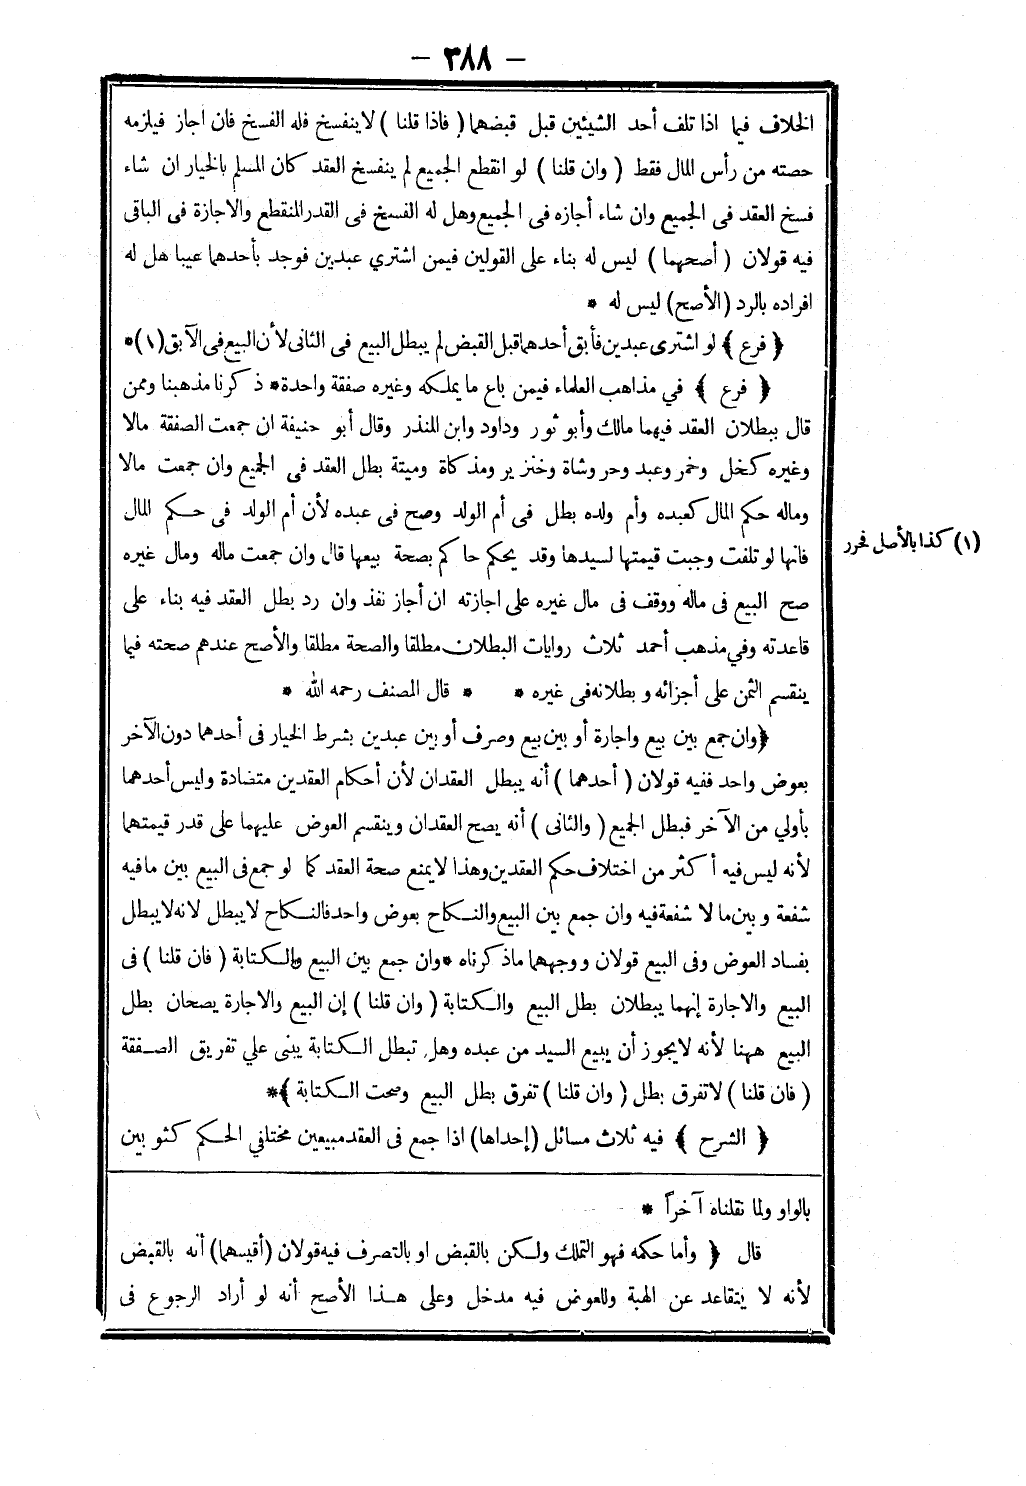 — ٣٨٨ —
الخلاف فيما اذا تلف أحد الشيئين قبل قبضهما ( فاذا قلنا ) لاينفسخ فله الفسخ فان اجاز فيلزمه
حصته من رأس المال فقط ( وان قلنا ) لو انقطع الجميع لم ينفسخ العقد كان المسلم بالخيار ان شاء
فسخ العقد فى الجميع وان شاء أجازه فى الجميع وهل له الفسخ فى القدر المنقطع والاجازة فى الباقى
فيه قولان ( أصحهما ) ليس له بناء على القولين فيمن اشتري عبدين فوجد بأحدهما عيبا هل له
افراده بالرد (الأصح) ليس له *
﴿ فرع ﴾ لو اشترى عبدين فأبق أحدهما قبل القبض لم يبطل البيع فى الثانى لأن البيع فى الآبق (١)*
﴿ فرع ﴾ في مذاهب العلماء فيمن باع ما يملكه وغيره صفقة واحدة* ذكرنا مذهبنا وممن
قال ببطلان العقد فيهما مالك وأبو ثور وداود وابن المنذر وقال أبو حنيفة ان جمعت الصفقة مالا
وغيره كخل وخمر وعبد وحر وشاة وخنزير ومذكاة وميتة بطل العقد فى الجميع وان جمعت مالا
وماله حكم المال كعبده وأم ولده بطل فى أم الولد وصح فى عبده لأن أم الولد فى حكم المال
فانها لو تلفت وجبت قيمتها لسيدها وقد يحكم حاكم بصحة بيعها قال وان جمعت ماله ومال غيره
صح البيع فى ماله ووقف فى مال غيره على اجازته ان أجاز نفذ وان رد بطل العقد فيه بناء على
قاعدته وفي مذهب أحمد ثلاث روايات البطلان مطلقا والصحة مطلقا والأصح عندهم صحته فيما
ينقسم الثمن على أجزائه وبطلانه فى غيره * * قال المصنف رحمه الله *
﴿وان جمع بين بيع واجارة أو بين بيع وصرف أو بين عبدين بشرط الخيار فى أحدهما دون الآخر
بعوض واحد ففيه قولان ( أحدهما ) أنه يبطل العقدان لأن أحكام العقدين متضادة وليس أحدهما
بأولي من الآخر فبطل الجميع ( والثانى ) أنه يصح العقدان وينقسم العوض عليهما على قدر قيمتهما
لأنه ليس فيه أكثر من اختلاف حكم العقدين وهذا لا يمنع صحة العقد كما لو جمع فى البيع بين ما فيه
شفعة وبين ما لا شفعة فيه وان جمع بين البيع والنكاح بعوض واحد فالنكاح لا يبطل لانه لا يبطل
بفساد العوض وفى البيع قولان ووجههما ماذكرناه *وان جمع بين البيع والكتابة ( فان قلنا ) فى
البيع والاجارة إنهما يبطلان بطل البيع والكتابة ( وان قلنا ) إن البيع والاجارة يصحان بطل
البيع ههنا لأنه لا يجوز أن يبيع السيد من عبده وهل تبطل الكتابة يبنى علي تفريق الصفقة
( فان قلنا ) لا تفرق بطل ( وان قلنا ) تفرق بطل البيع وصحت الكتابة ﴾*
﴿ الشرح ﴾ فيه ثلاث مسائل (إحداها) اذا جمع فى العقد مبيعين مختلفي الحكم كثوبين
(١) كذا بالأصل فحرر
بالواو ولما نقلناه آخراً *
قال ﴿ وأما حكمه فهو التملك ولكن بالقبض او بالتصرف فيه قولان (أقيسهما) أنه بالقبض
لأنه لا يتقاعد عن الهبة وللعوض فيه مدخل وعلى هذا الأصح أنه لو أراد الرجوع فى